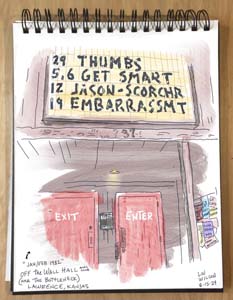 29 THUMBS
5,6 GET SMART
12 JASON-SCORCHR
19 EMBARRASSMT
EXIT
ENTER
"JAN/FEB 1982"
OFF THE WALL HALL
(AKA THE BOTTLENECK)
LAWRENCE, KANSAS
WILSON